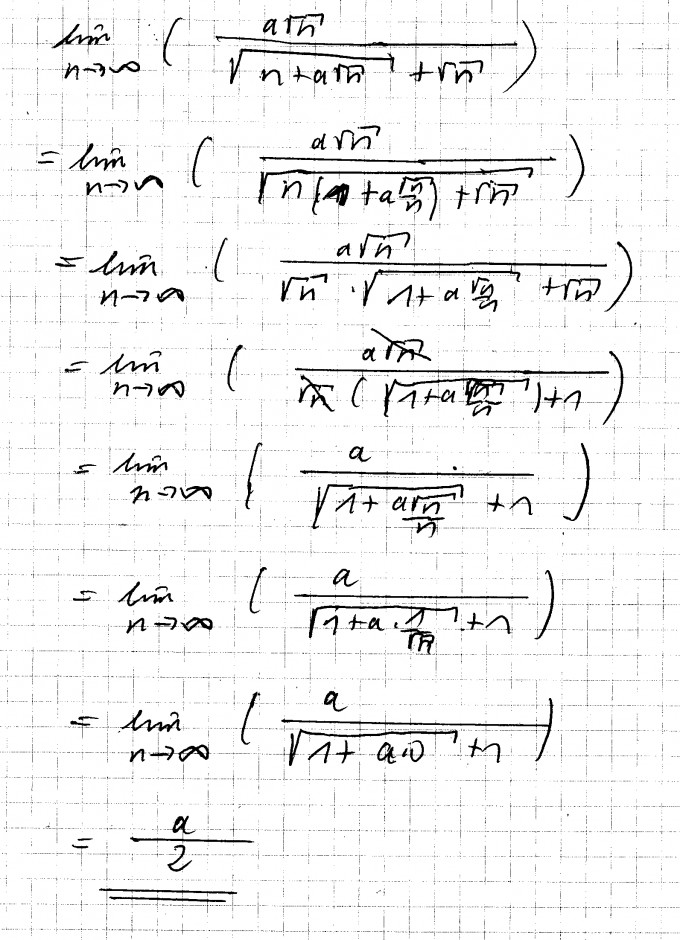 lim n→∞ ( a√n / (√(n + a√n) + √n) )
= lim n→∞ ( a√n / (√(n(1 + a √n/n)) + √n) )
= lim n→∞ ( a√n / (√n · √(1 + a √n/n) + √n) )
= lim n→∞ ( a√n / (√n (√(1 + a √n/n) ) + 1) )
= lim n→∞ ( a / (√(1 + a√n/n) + 1) )
= lim n→∞ ( a / (√(1 + a · 1/√n) + 1) )
= lim n→∞ ( a / (√(1 + a·0) + 1) )
= a / 2